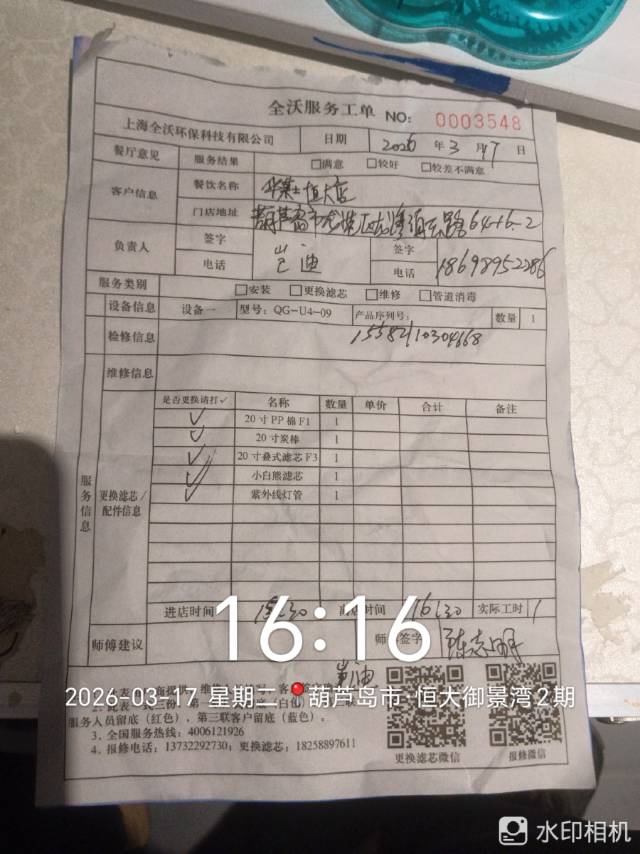 全沃服务工单 NO: 0003548
上海全沃环保科技有限公司 日期 2026 年 3 月 17 日
餐厅意见 服务结果 □满意 □较好 □较差不满意
客户信息 餐饮名称 华莱士恒大店
门店地址 葫芦岛市龙港区 路64+6-2
负责人 签字 签字
电话 电话 18698952286
服务类别 □安装 □更换滤芯 □维修 □管道消毒
设备信息 设备一 型号: QG-U4-09 产品序列号: 数量 1
检修信息 15582110304668
维修信息
服务信息
更换滤芯/配件信息
是否更换请打✓ 名称 数量 单价 合计 备注
✓ 20寸PP棉F1 1
✓ 20寸炭棒 1
✓ 20寸叠式滤芯F3 1
✓ 小白熊滤芯 1
✓ 紫外线灯管 1
进店时间 时间 16:30 实际工时 1
师傅建议 签字 陈志明
16:16
2026-03-17 星期二 葫芦岛市·恒大御景湾2期
服务人员留底（红色），第三联客户留底（蓝色）。
3. 全国服务热线: 4006121926
4. 报修电话: 13732292730; 更换滤芯: 18258897611
更换滤芯微信 报修微信
水印相机